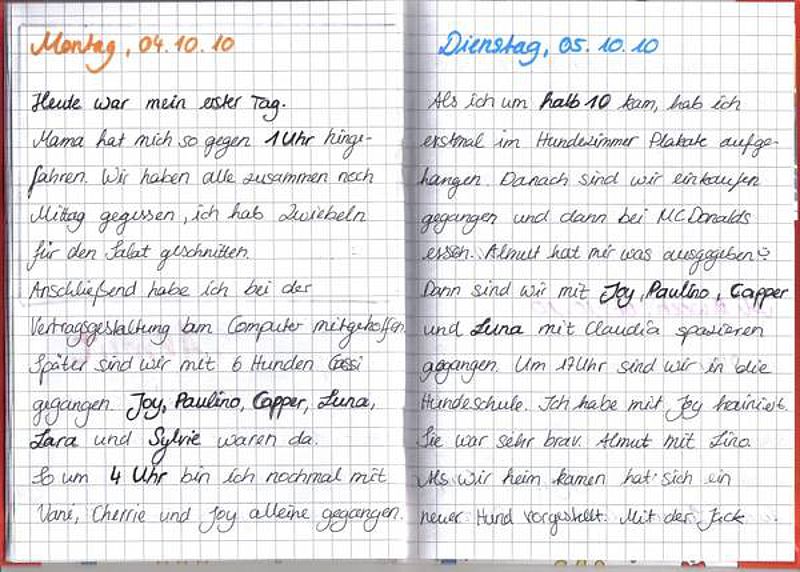 Montag, 04.10.10
Heute war mein erster Tag.
Mama hat mich so gegen 1 Uhr hinge-
fahren. Wir haben alle zusammen noch
Mittag gegessen, ich hab Zwiebeln
für den Salat geschnitten.
Anschließend habe ich bei der
Vertragsgestaltung am Computer mitgeholfen.
Später sind wir mit 6 Hunden Gassi
gegangen. Joy, Paulino, Capper, Luna,
Lara und Sylvie waren da.
So um 4 Uhr bin ich nochmal mit
Vani, Cherrie und Joy alleine gegangen.
Dienstag, 05.10.10
Als ich um halb 10 kam, hab ich
erstmal im Hundezimmer Plakate aufge-
hangen. Danach sind wir einkaufen
gegangen und dann bei MCDonalds
essen. Almut hat mir was ausgegeben
Dann sind wir mit Joy, Paulino, Capper
und Luna mit Claudia spazieren
gegangen. Um 17 Uhr sind wir in die
Hundeschule. Ich habe mit Joy trainiert.
Sie war sehr brav. Almut mit Lino.
Als wir heim kamen hat sich ein
neuer Hund vorgestellt. Mit der Jack